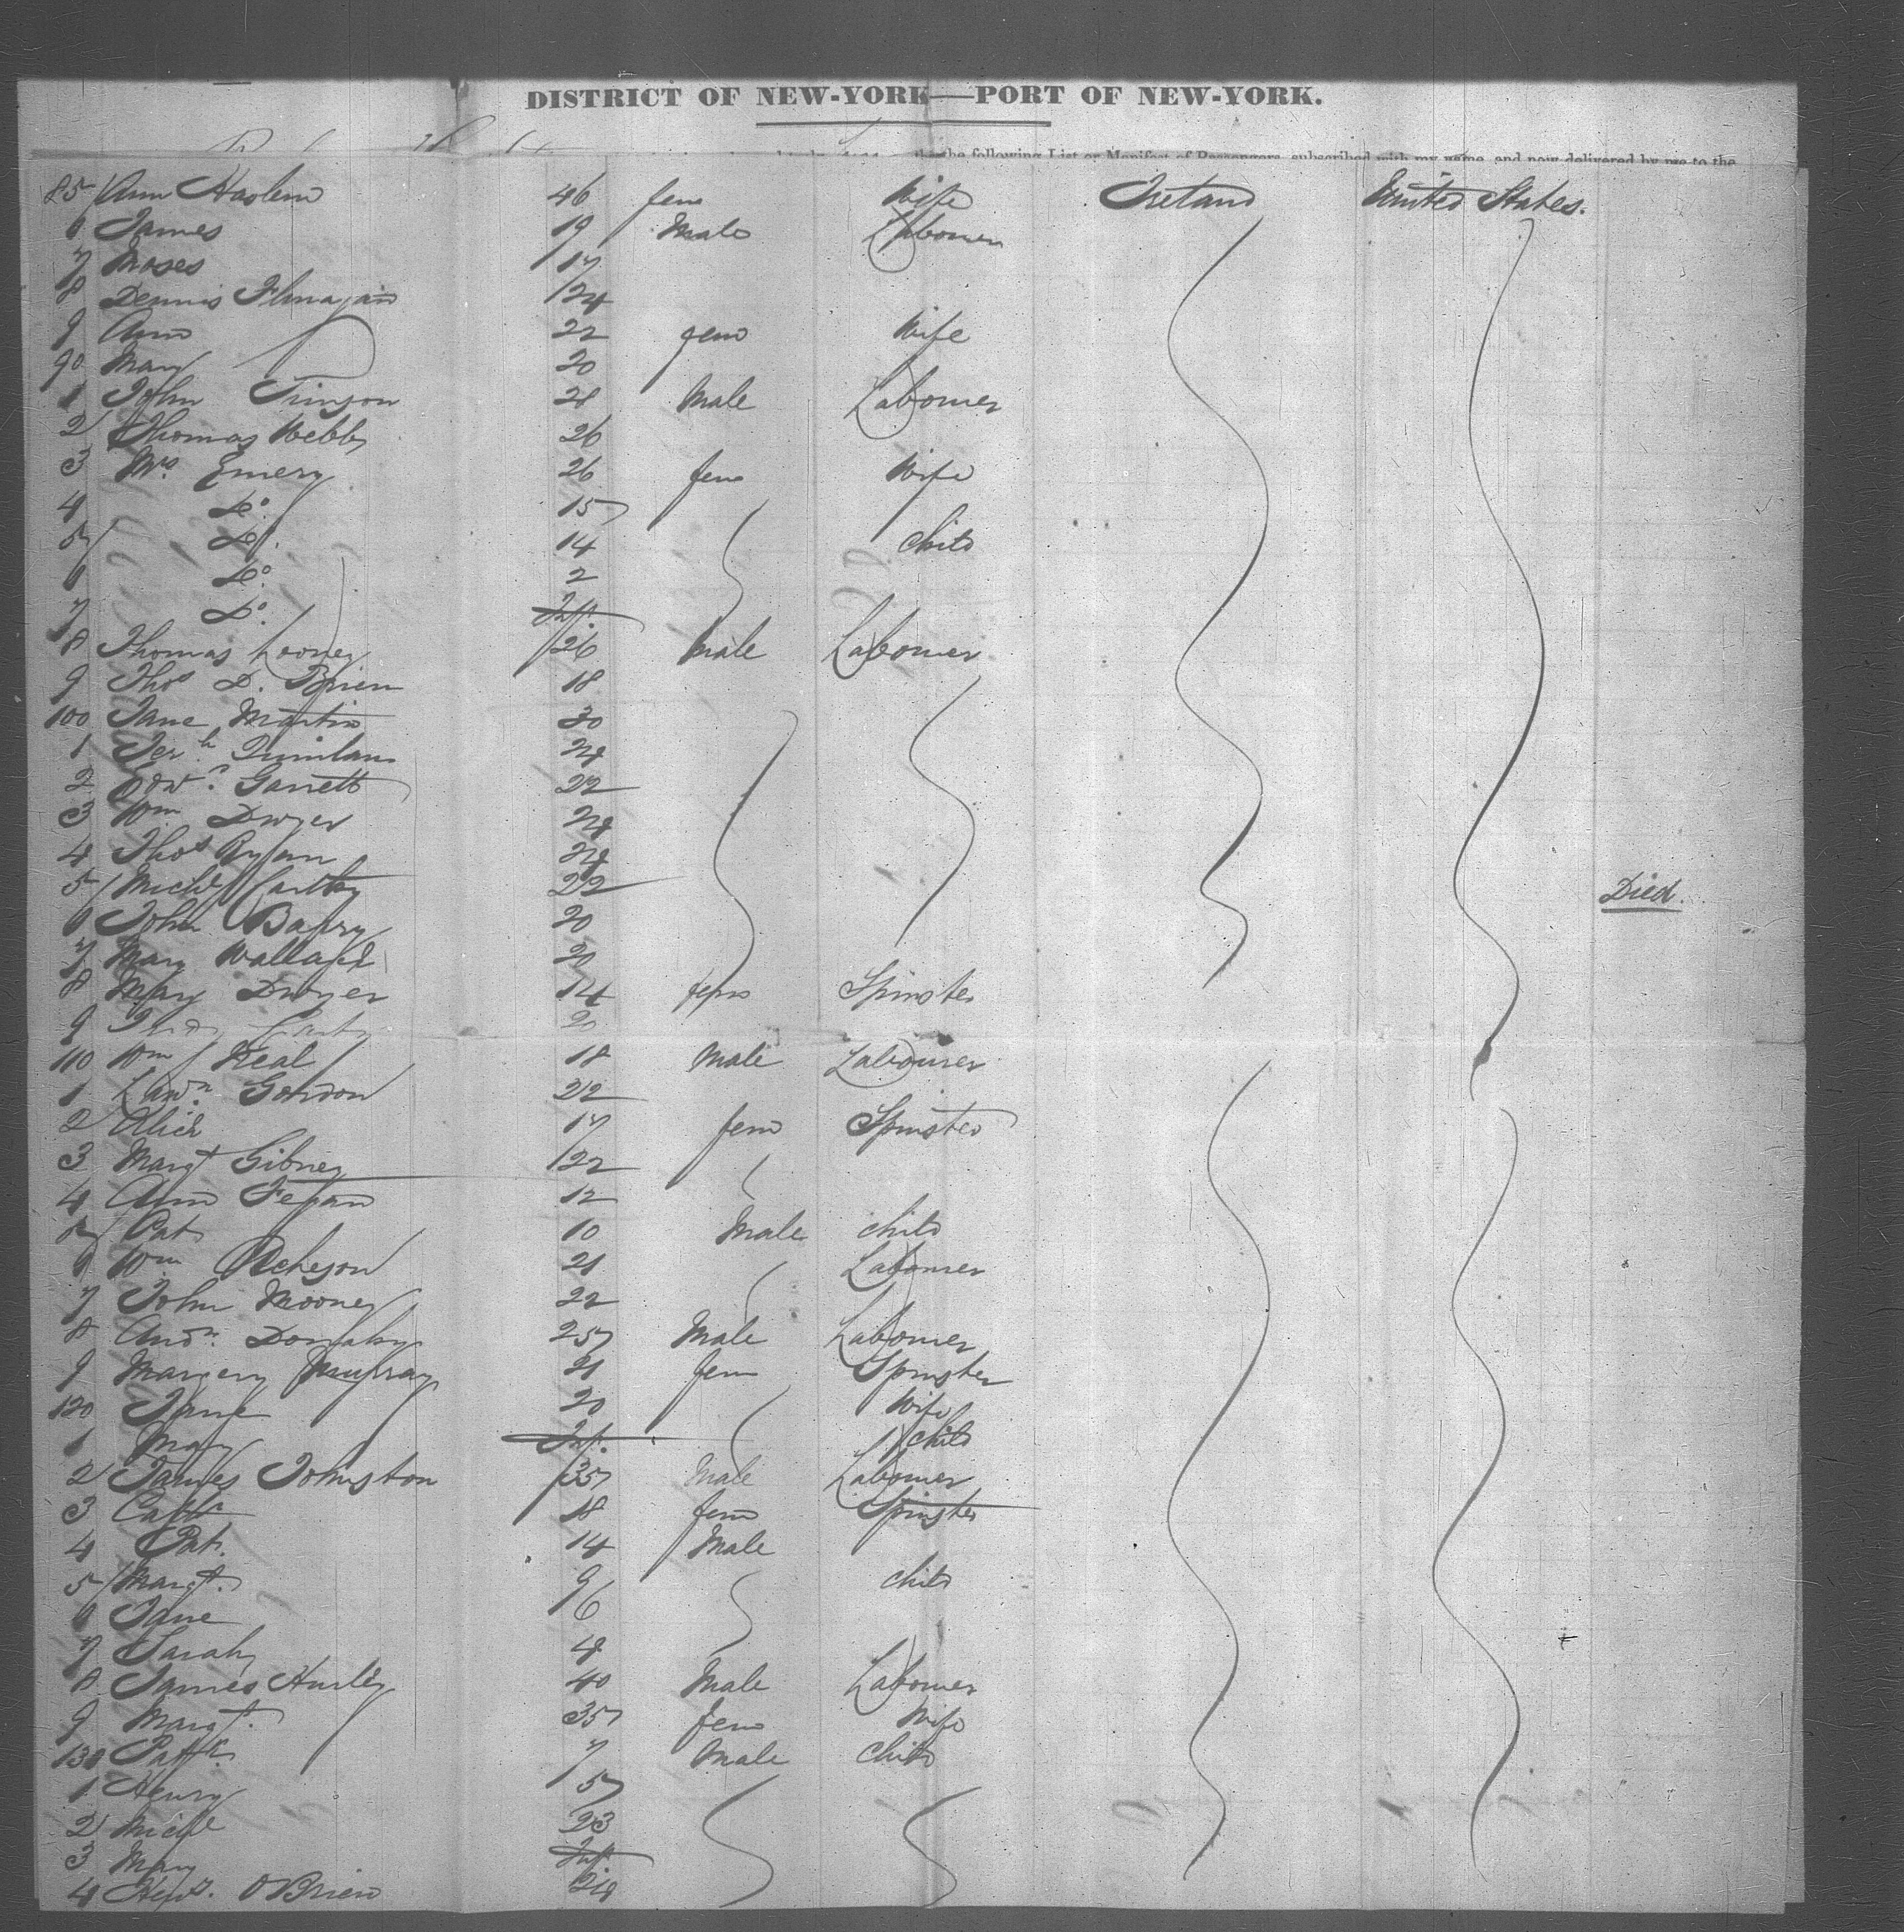 DISTRICT OF NEW-YORK—PORT OF NEW-YORK.
the following List or Manifest of Passengers, subscribed with my name, and now delivered by me to the
85 Ann Haslem 46 fem Wife Ireland United States.
6 James 19 Male Labourer
7 Moses 17
8 Dennis Flanagan 24
9 Ann 22 fem Wife
90 Mary 20
1 John 21 Male Labourer
2 Thomas Webb 26
3 Mrs Emery 26 fem Wife
4 Do. 15
5 Do. 14 Child
6 Do. 2
7 Do. Inf.
8 Thomas Looney 26 Male Labourer
9 Thos D. Brien 18
100 Jane Martin 30
1 Jerh Quinlan 24
2 Edwd. Garrett 22
3 Wm Dwyer 24
4 Thos Ryan 24
5 Michl Carthy 22 Died.
6 John Barry 20
7 Mary Wallace 20
8 Mary Dwyer 14 fem Spinster
9 Carty 20
110 Wm Neal 18 Male Labourer
1 Lawn. Gordon 22
2 Alice 17 fem Spinster
3 Margt Gibney 22
4 Ann Fegan 12
5 Pat 10 Male child
6 Wm Acheson 21 Labourer
7 John Mooney 22
8 Andw. 25 Male Labourer
9 Margery Murray 21 fem Spinster
120 Jane 20 Wife
1 Mary Inf. child
2 James Johnston 35 Male Labourer
3 Cathr 18 fem Spinster
4 Pat. 14 Male
5 Margt. 9 child
6 Jane 6
7 Sarah 4
8 James Hurley 40 Male Labourer
9 Margt. 35 fem Wife
130 Patk 7 Male Child
1 Henry 5
2 Michl 23
3 Mary Inf.
4 O'Brien 24